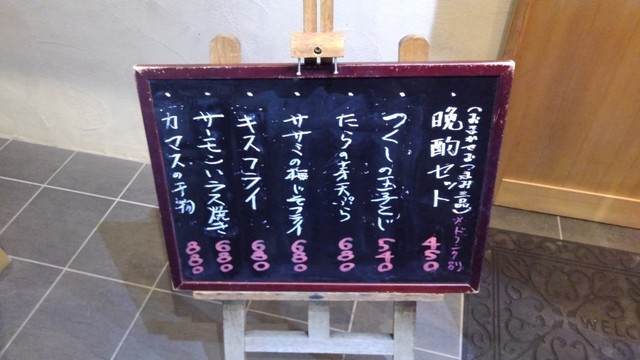 (おまかせおつまみ三品)
・晩酌セット 450
※ドリンク別
・つくしの玉子とじ 540
・たらの芽天ぷら 680
・ササミの梅じそフライ 680
・キスフライ 680
・サーモンハラス焼き 680
・カマスの干物 880
WELCO